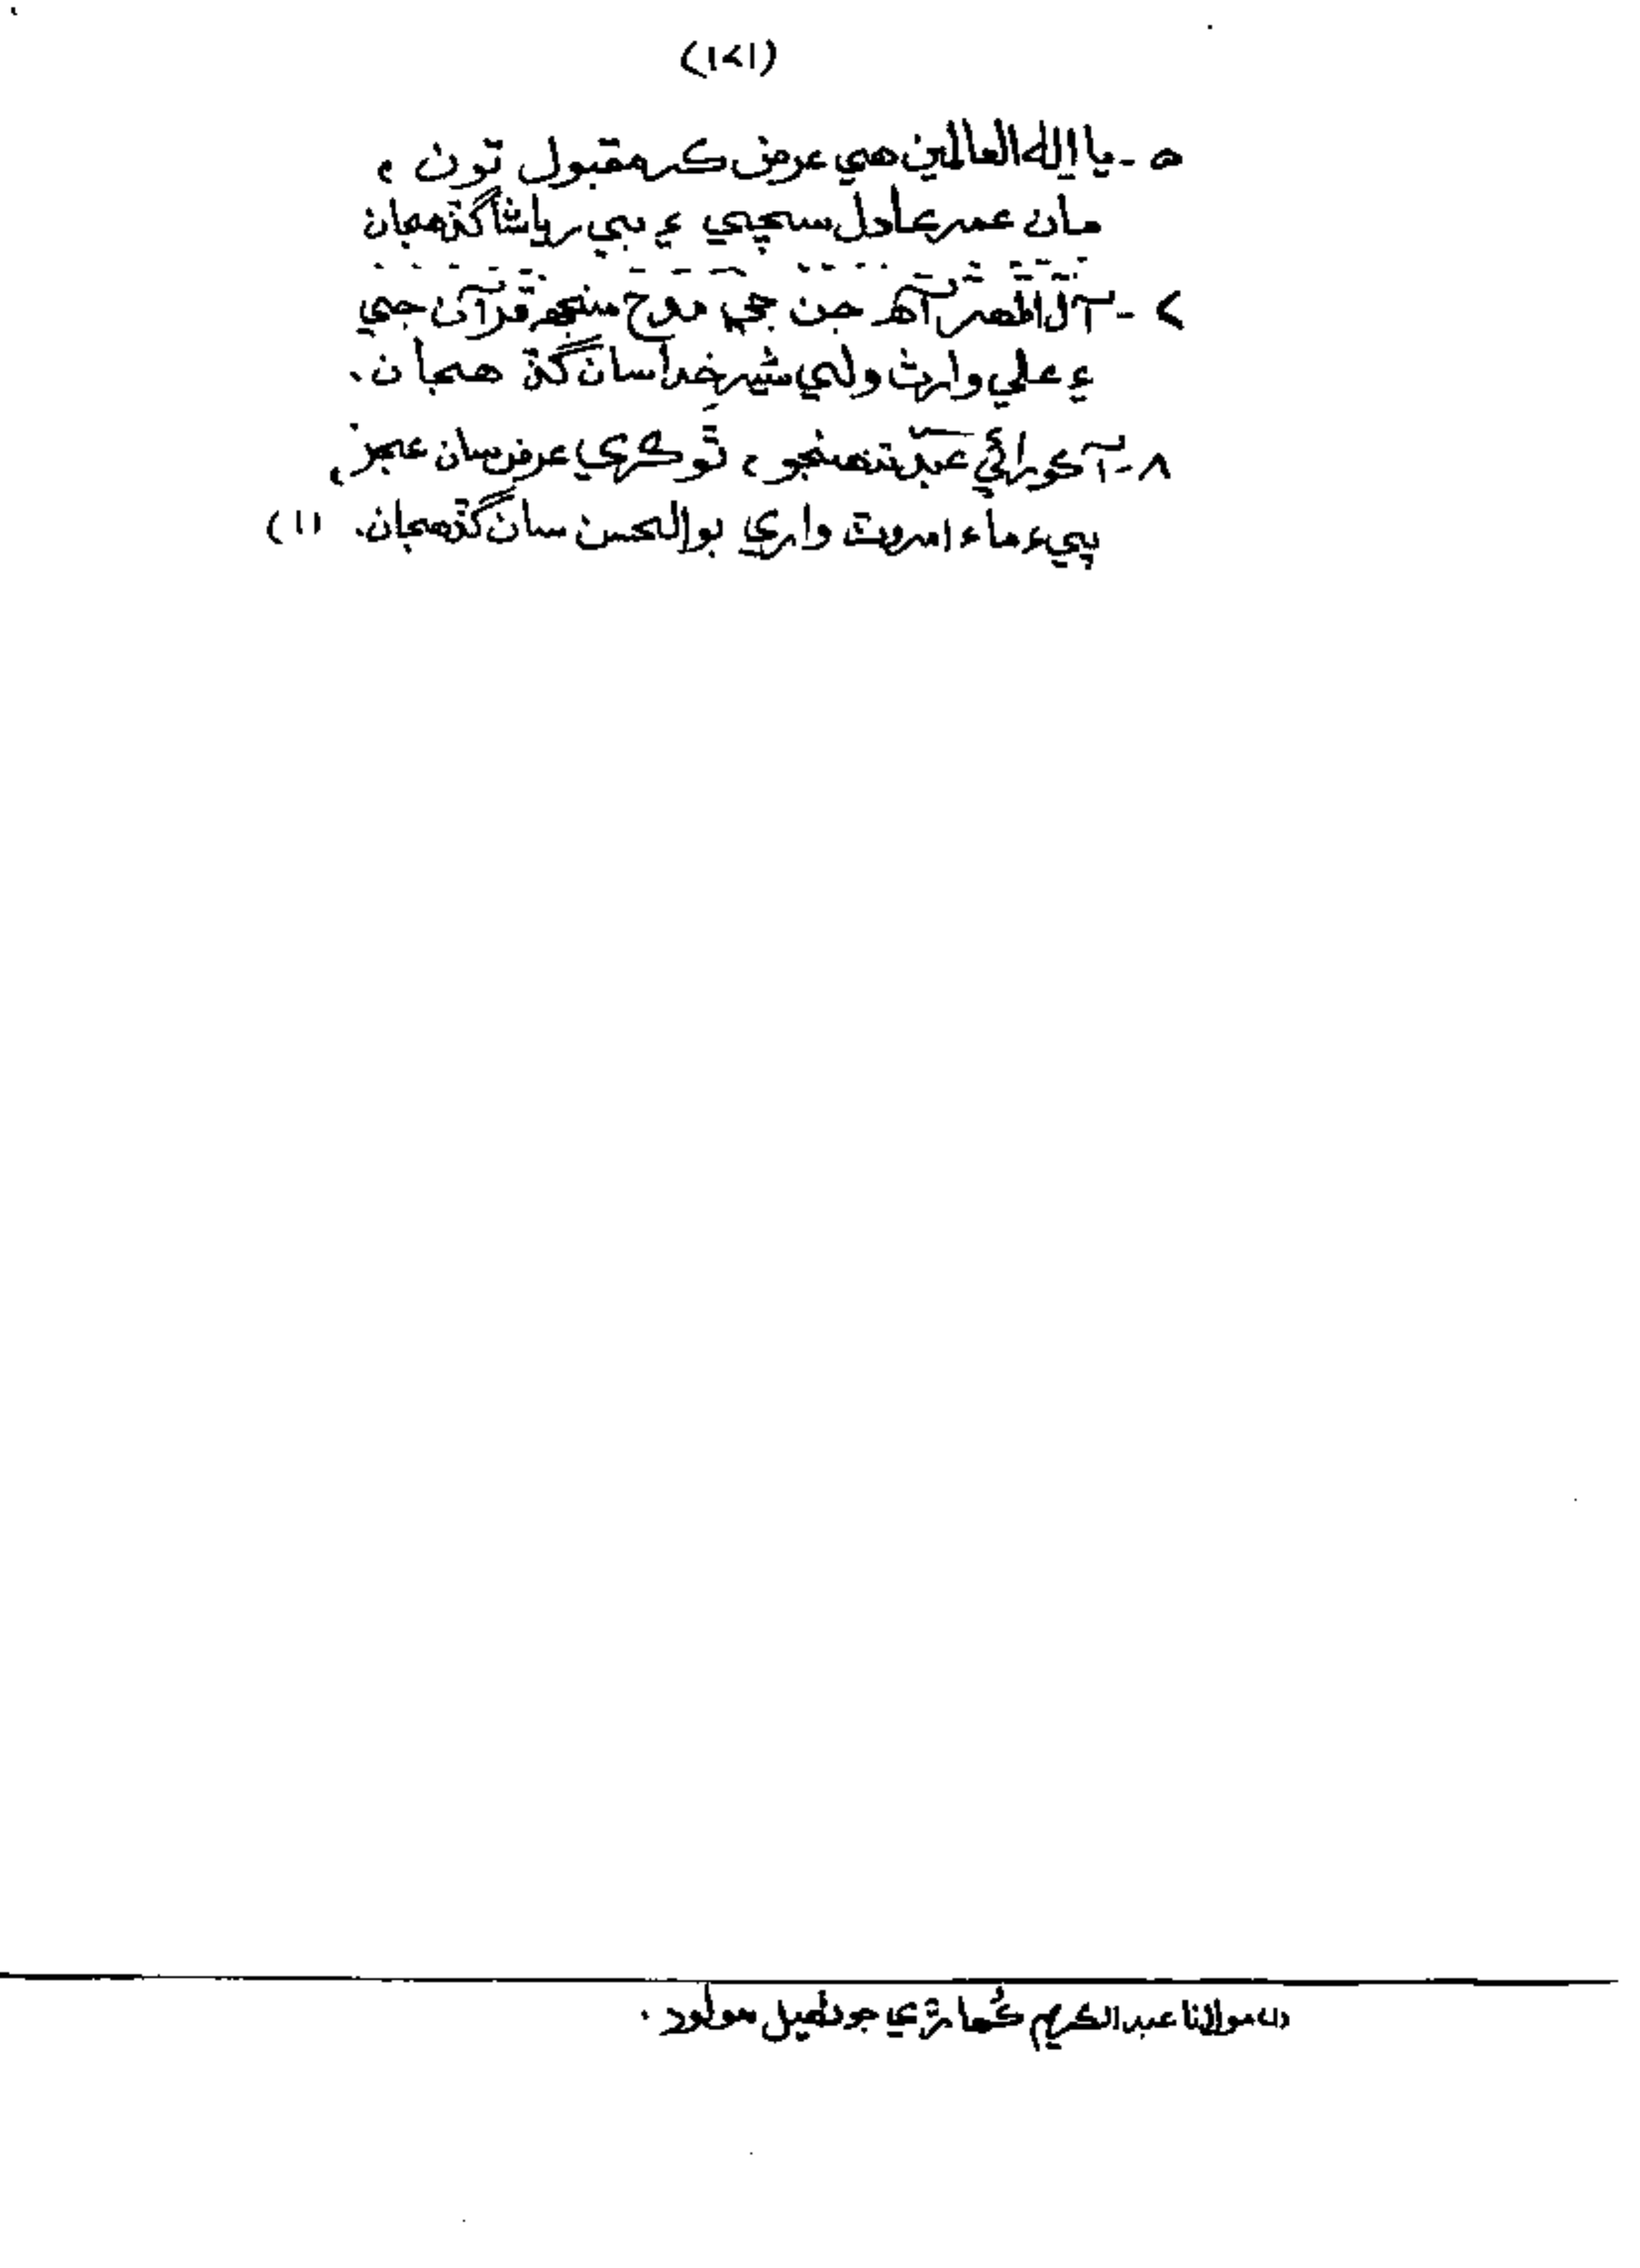 (١٤١)
٥- يا اله العالمين هي عرض ڪر مقبول تون،
مان عمر عادل سچي ۽ ٻي رپاشا گڏهجان
٧- آل اطهر آهہ جن جي مدح منجهہ قرآن جي
۽ علي وارث ولي شير خدا سان گڏ هجان.
٨- آڪو راڻي عبد تنهنجو، توڪري عرض سان عاجز،
پيءُ ماءُ امروت واري بوالحسن سان گڏ هجان. (١)
(١) مولانا عبدالڪريم جو مولود.